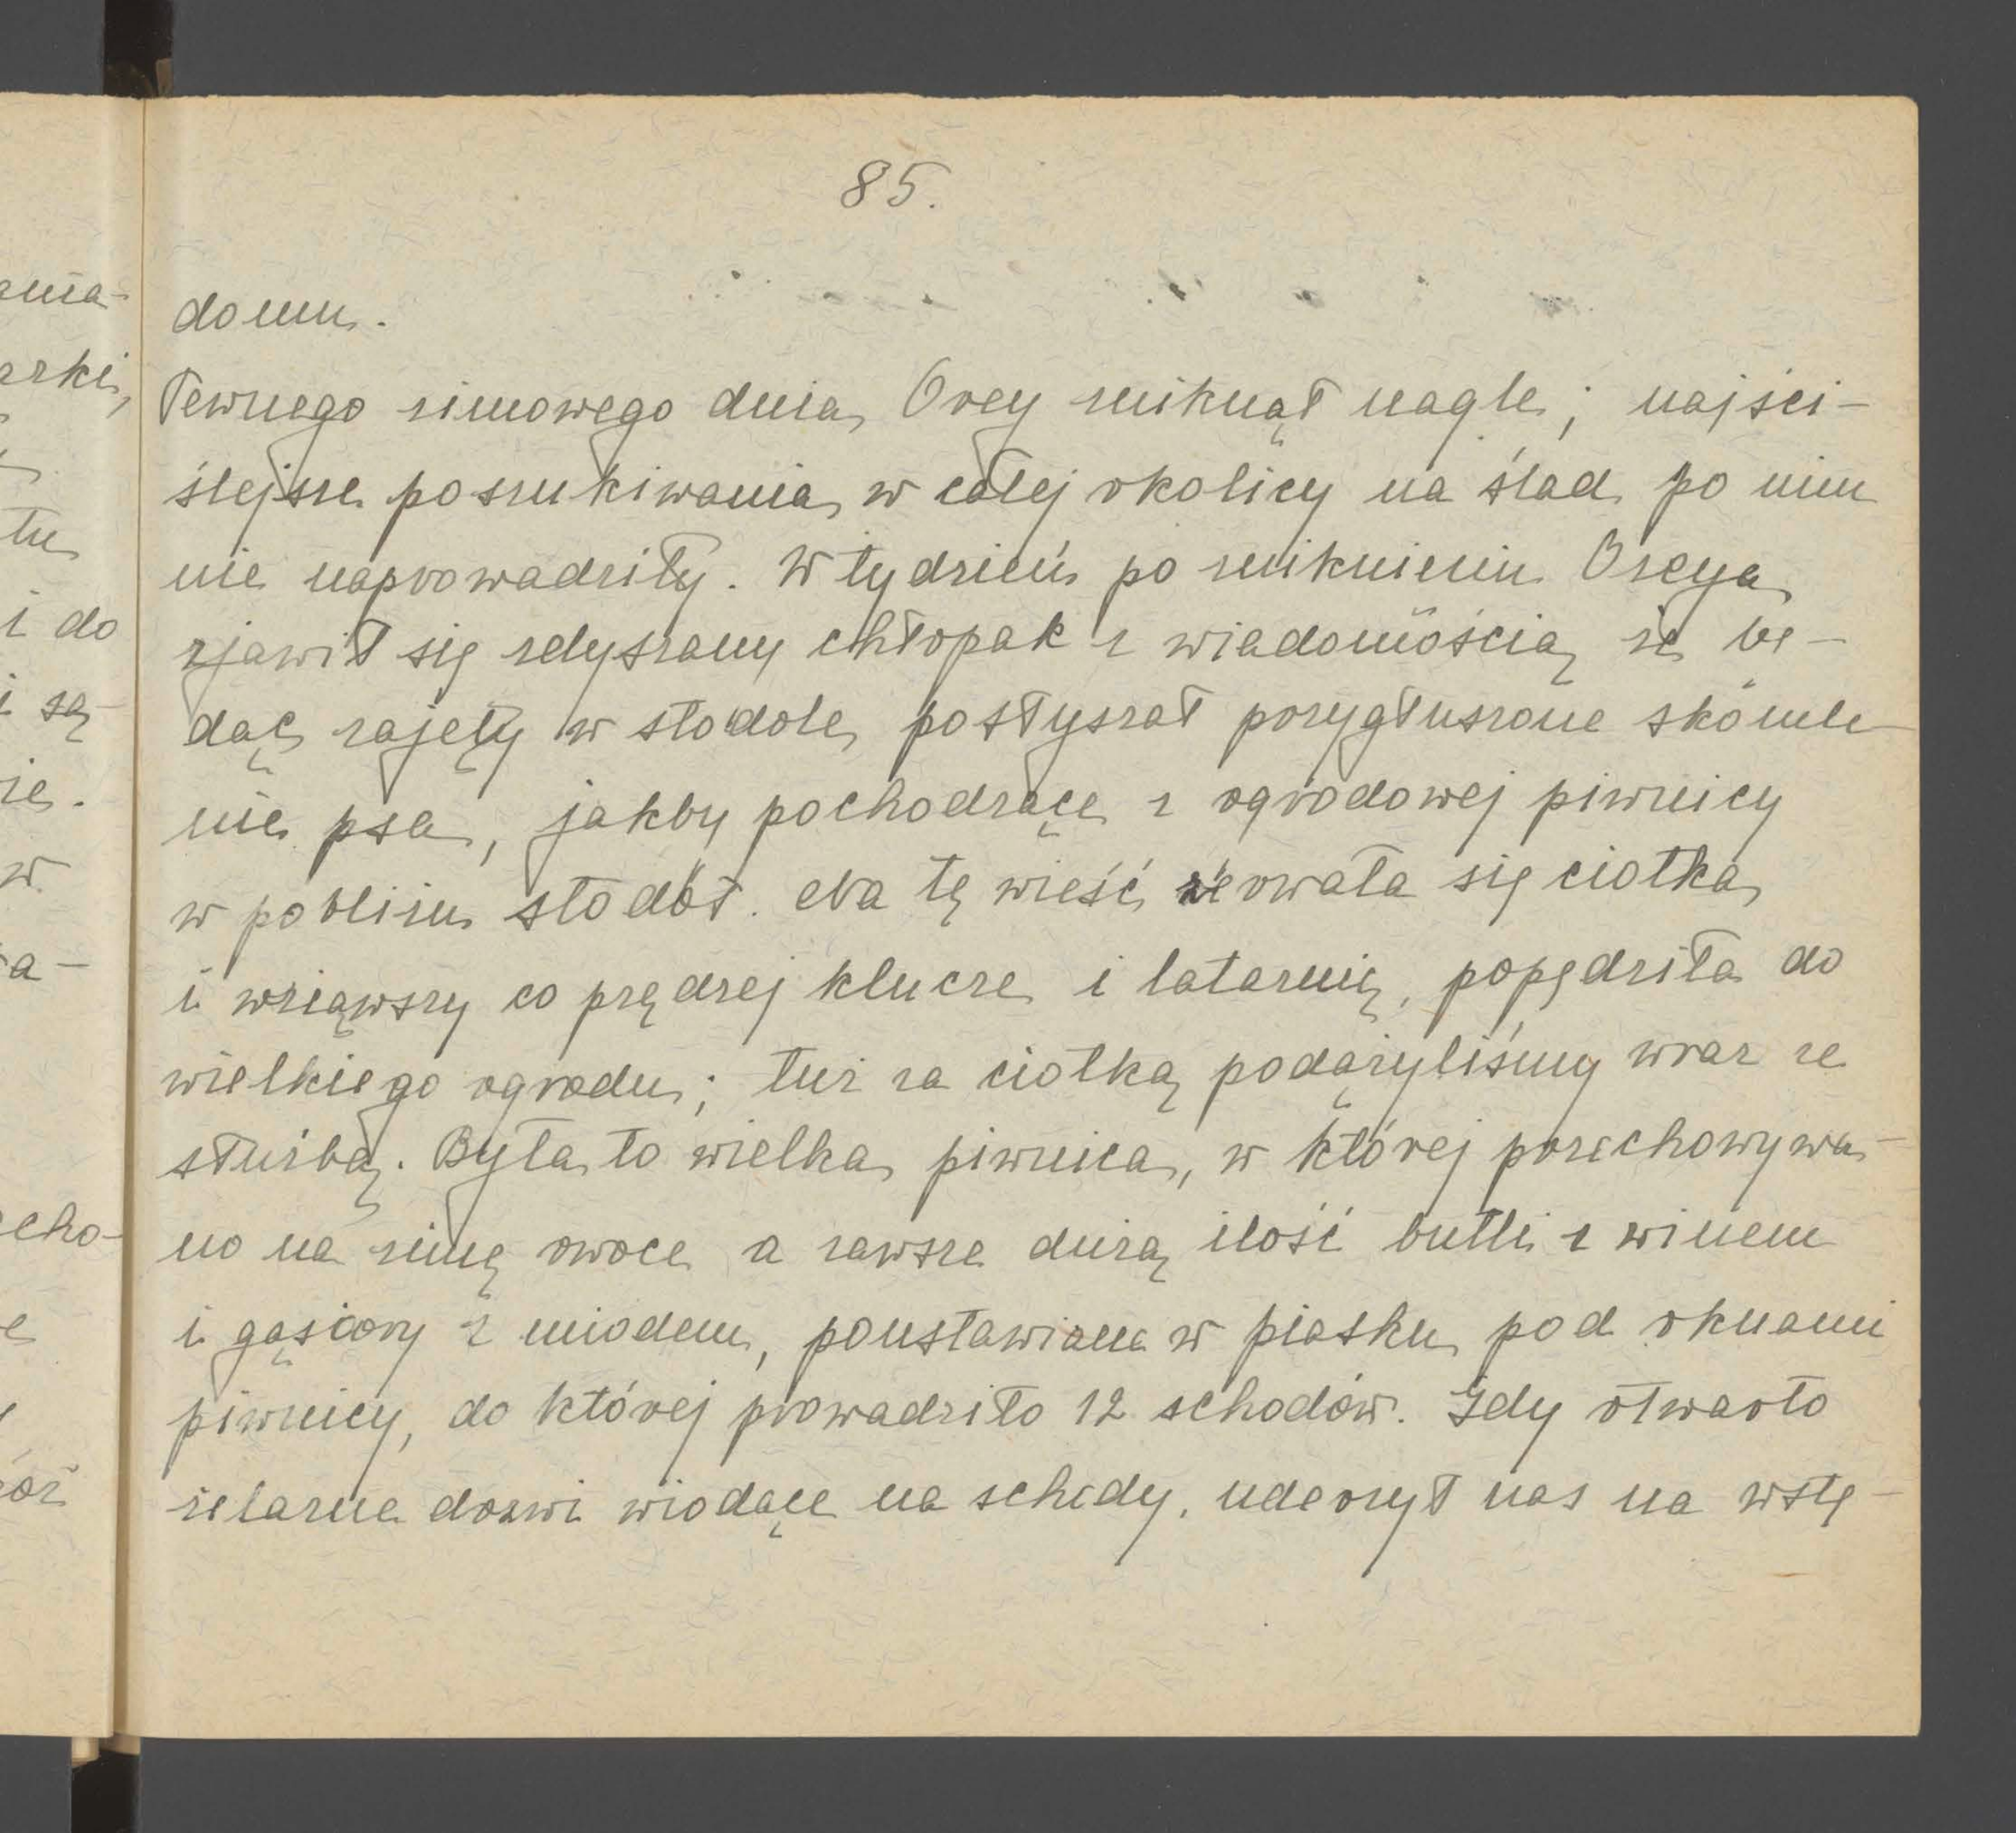 85.
ania-
arki,
tu
i do
i są
ie.
w
a-
cho-
e
domu.
Pewnego zimowego dnia, Orcy zniknął nagle; najści-
ślejsze poszukiwania, w całej okolicy na ślad po nim
nie naprowadziły. W tydzień po zniknieniu Orcya
zjawił się zdyszany chłopak z wiadomością że bę-
dąc zajęty w stodole, posłyszał przygłuszone skomle-
nie psa, jakby pochodzące z ogrodowej piwnicy
w pobliżu stodół. Na tę wieść zerwała się ciotka,
i wziąwszy co prędzej klucze i latarnię, popędziła do
wielkiego ogrodu; tuż za ciotką podążyliśmy wraz ze
służbą. Była to wielka piwnica, w której przechowywa-
no na zimę owoce a zawsze dużą ilość butli z winem
i gąsiory z miodem, poustawiane w piasku pod oknami
piwnicy, do której prowadziło 12 schodów. Gdy otwarto
żelazne drzwi wiodące na schody, uderzył nas na wstę-